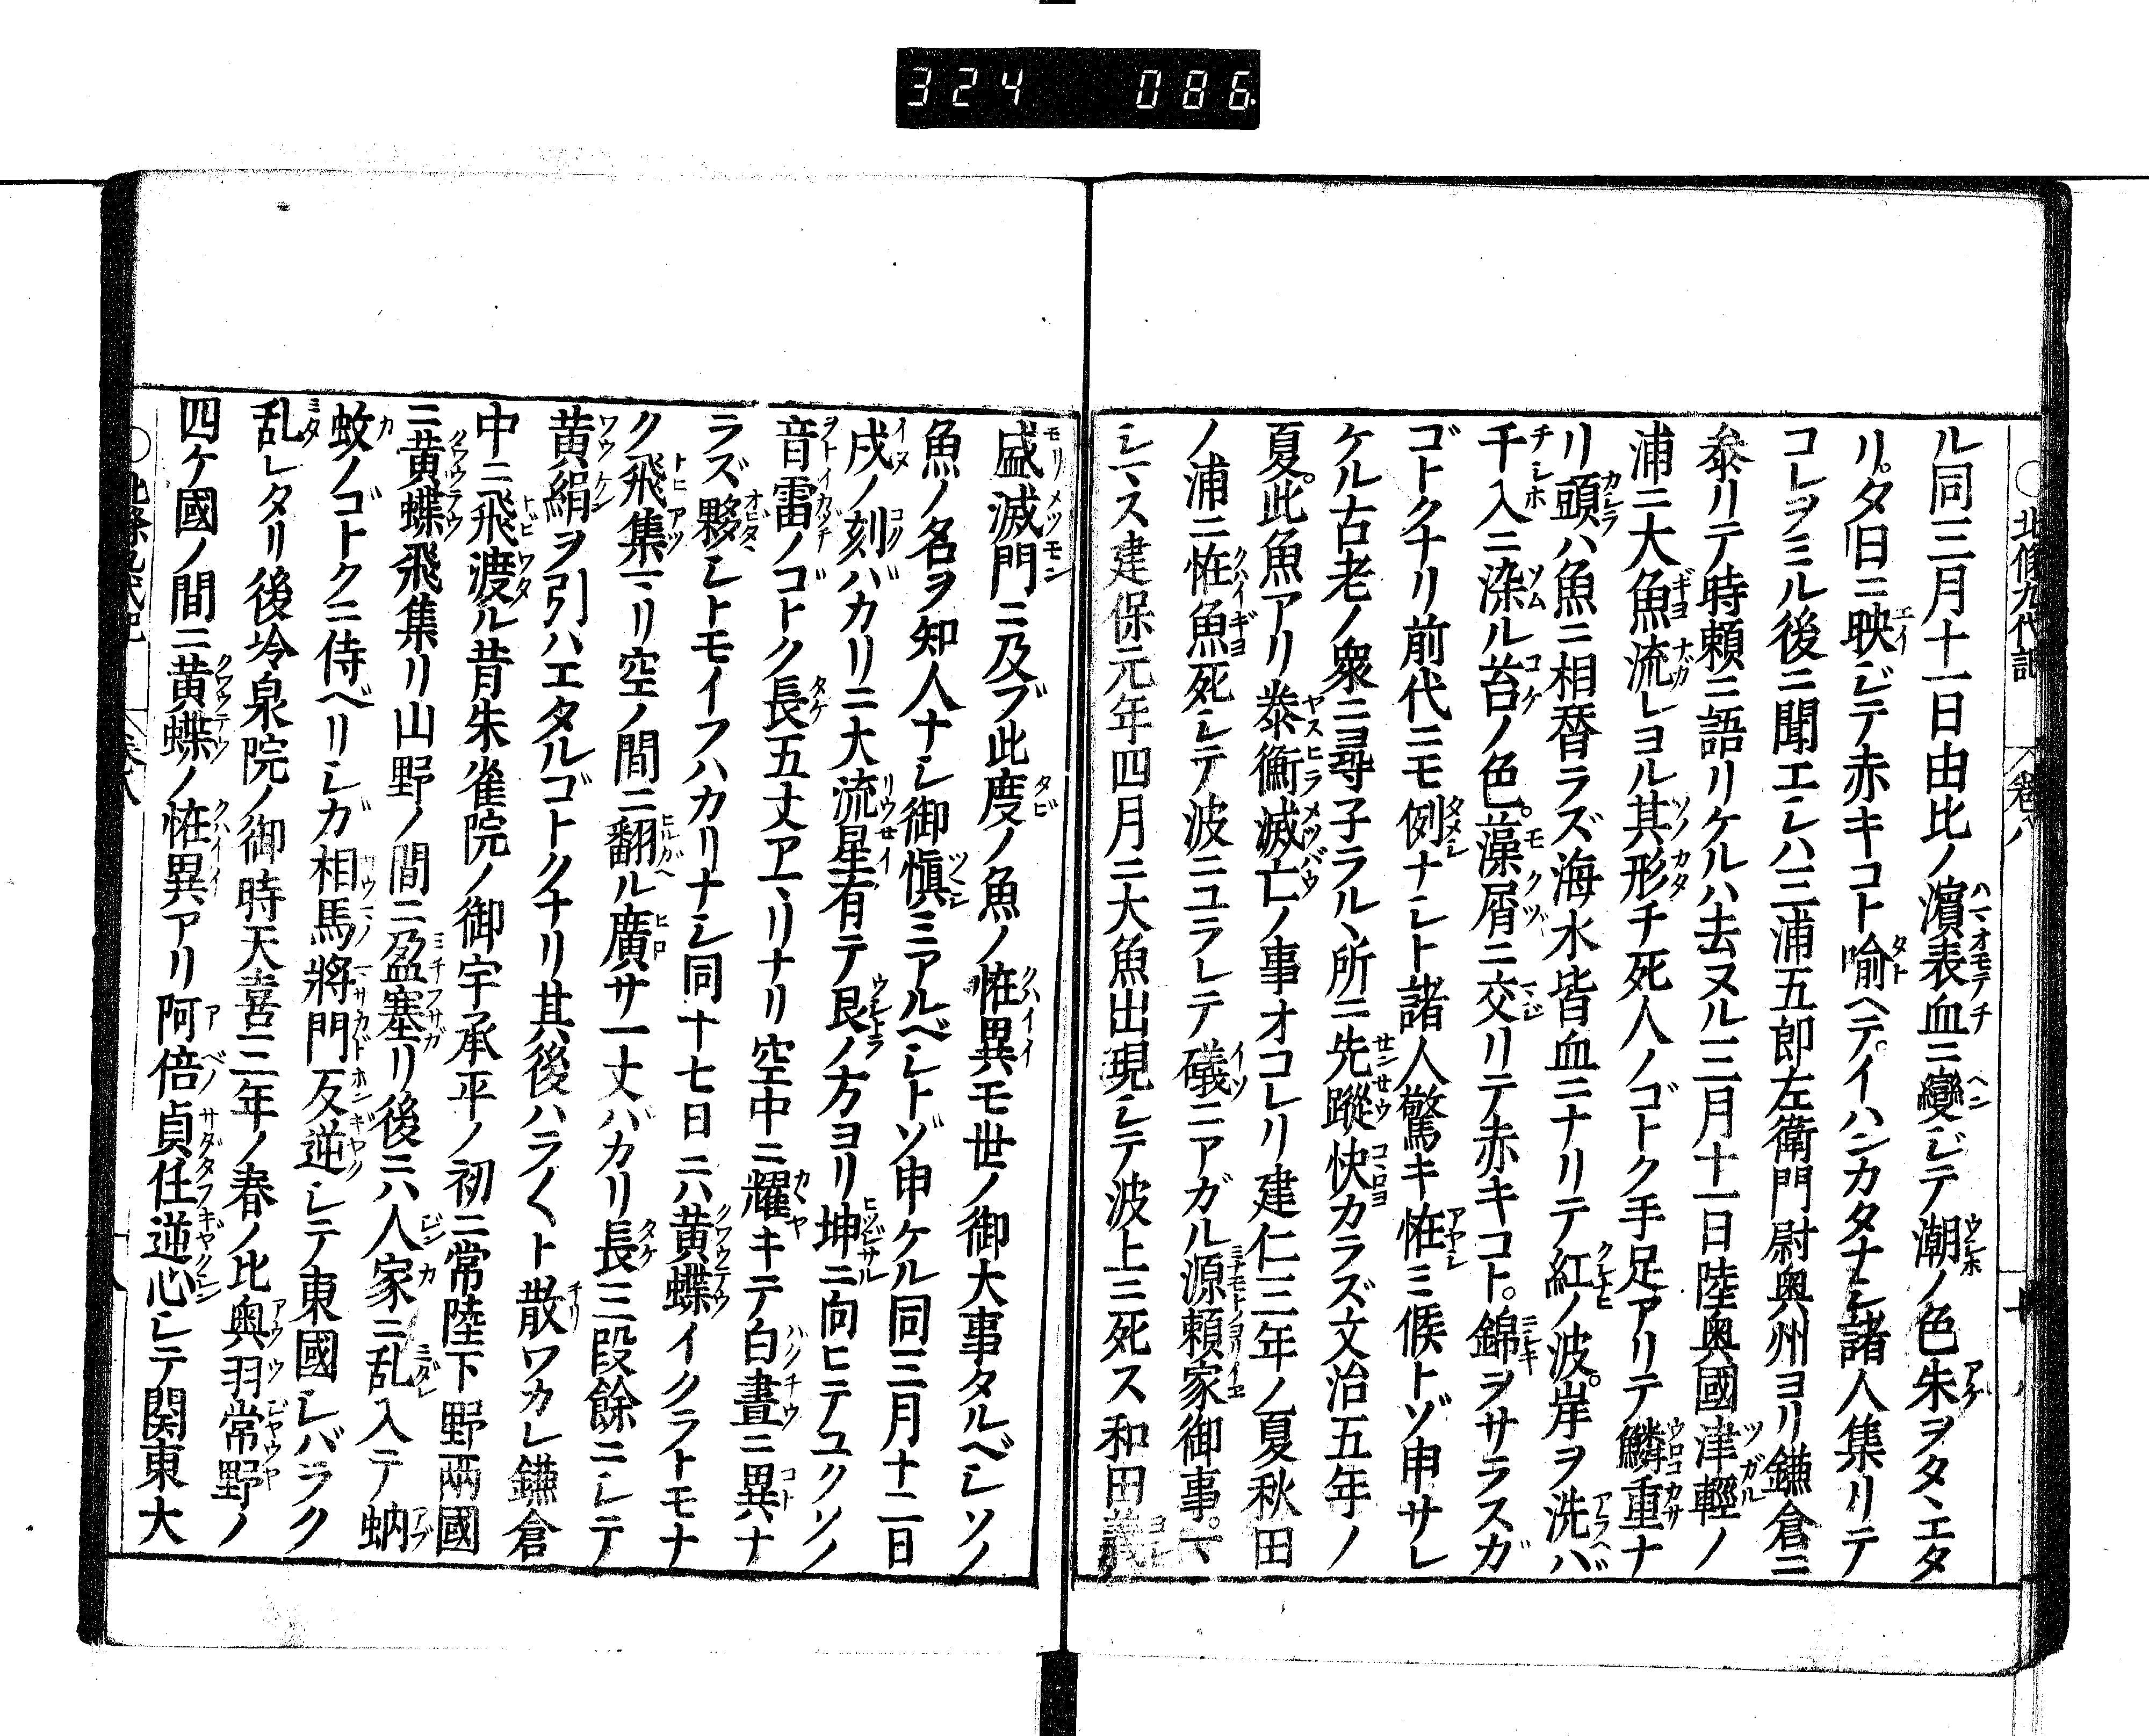 324 086
○北條九代記 卷八
ル同三月十一日由比ノ濵表血ニ變ジテ潮ノ色朱ヲタヽエタ
リ。夕日ニ映ジテ赤キコト喩ヘテ。イハンカタナシ諸人集リテ
コレヲミル後ニ聞エシハ三浦五郎左衛門尉奥州ヨリ鎌倉ニ
泰リテ時頼ニ語リケルハ去ヌル三月十一日陸奥國津輕ノ
浦ニ大魚流レヨル其形チ死人ノゴトク手足アリテ鱗重ナ
リ頭ハ魚ニ相替ラズ海水皆血ニナリテ紅ノ波。岸ヲ洗バ
千入ニ染ル苔ノ色。藻屑ニ交リテ赤キコト。錦ヲサラスガ
ゴトクナリ前代ニモ例ナシト諸人驚キ恠ミ候トゾ申サレ
ケル古老ノ衆ニ尋子ラルヽ所ニ先蹤快カラズ文治五年ノ
夏。此魚アリ泰衡滅亡ノ事オコレリ建仁三年ノ夏秋田
ノ浦ニ恠魚死シテ波ニユラレテ礒ニアガル源頼家御事。マ
シマス建保元年四月ニ大魚出現シテ波上ニ死ス和田義
盛滅門ニ及ブ此度ノ魚ノ恠異モ世ノ御大事タルベシソノ
魚ノ名ヲ知人ナシ御愼ミアルベシトゾ申ケル同三月十二日
戌ノ刻バカリニ大流星有テ艮ノ方ヨリ坤ニ向ヒテユクソノ
音雷ノゴトク長五丈アマリナリ空中ニ耀キテ白晝ニ異ナ
ラズ夥シトモイフハカリナシ同十七日ニハ黄蝶イクラトモナ
ク飛集マリ空ノ間ニ翻ル廣サ一丈バカリ長三段餘ニシテ
黄絹ヲ引ハエタルゴトクナリ其後ハラ〱ト散ワカレ鎌倉
中ニ飛渡ル昔朱雀院ノ御宇承平ノ初ニ常陸下野兩國
ニ黄蝶飛集リ山野ノ間ニ盈塞リ後ニハ人家ニ乱入テ蚋
蚊ノゴトクニ侍ベリシガ相馬將門反逆シテ東國シバラク
乱レタリ後冷泉院ノ御時天喜三年ノ春ノ比奥羽常野ノ
四ケ國ノ間ニ黄蝶ノ恠異アリ阿倍貞任逆心シテ関東大
○北條九代記 卷八